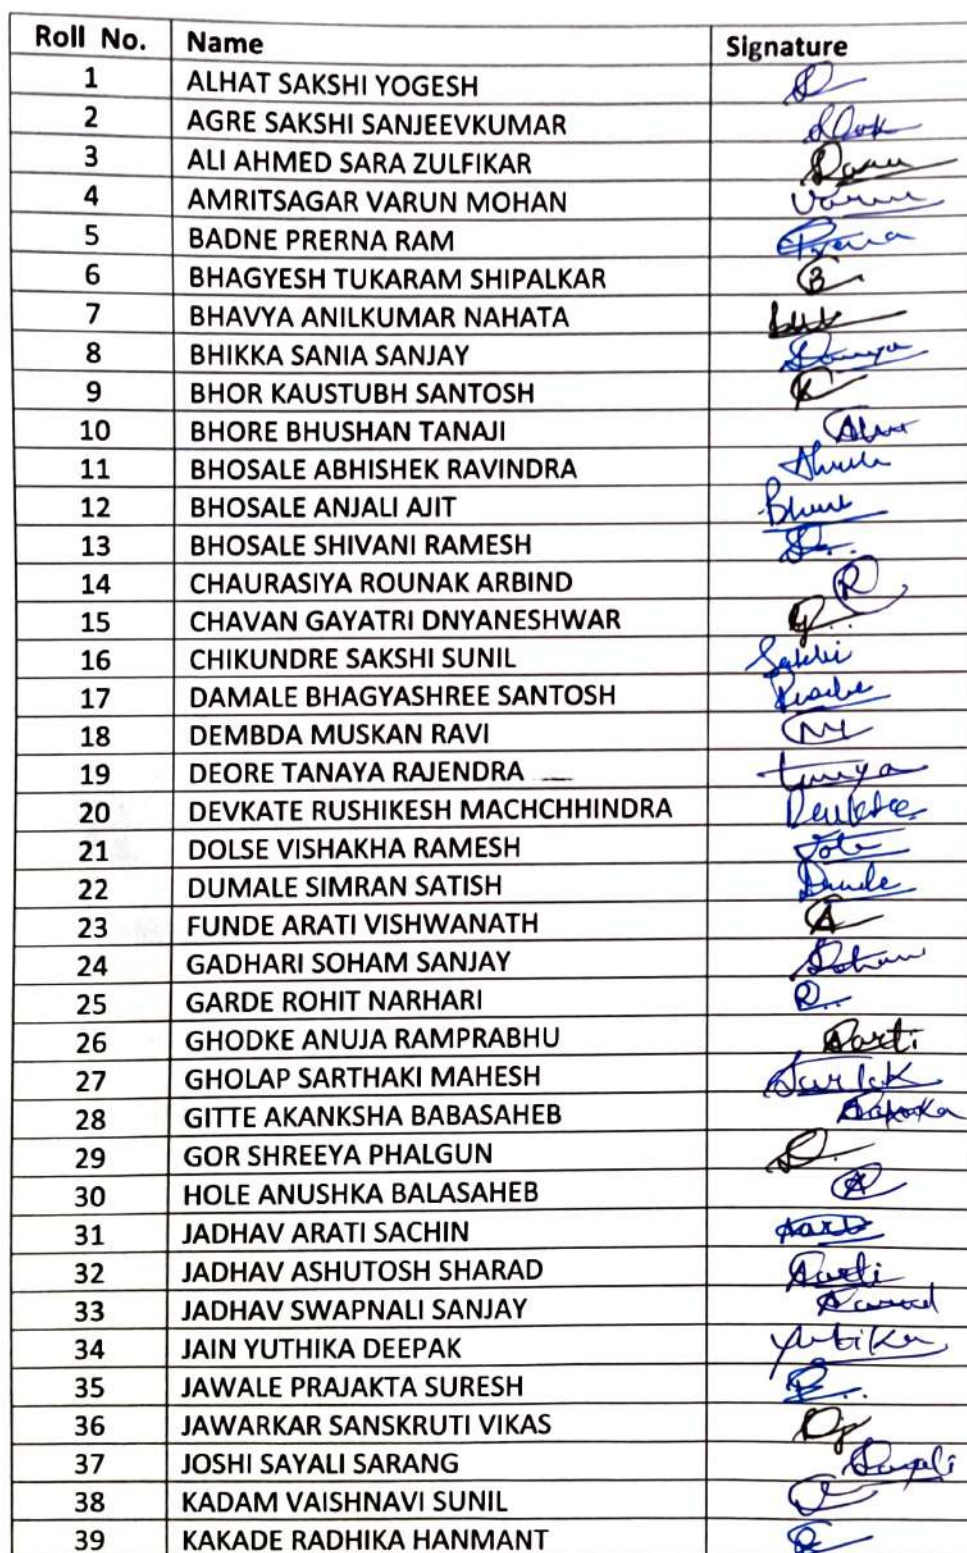 Roll No. Name Signature
1 ALHAT SAKSHI YOGESH
2 AGRE SAKSHI SANJEEVKUMAR
3 ALI AHMED SARA ZULFIKAR
4 AMRITSAGAR VARUN MOHAN Varun
5 BADNE PRERNA RAM
6 BHAGYESH TUKARAM SHIPALKAR B
7 BHAVYA ANILKUMAR NAHATA
8 BHIKKA SANIA SANJAY
9 BHOR KAUSTUBH SANTOSH K
10 BHORE BHUSHAN TANAJI
11 BHOSALE ABHISHEK RAVINDRA
12 BHOSALE ANJALI AJIT
13 BHOSALE SHIVANI RAMESH
14 CHAURASIYA ROUNAK ARBIND R
15 CHAVAN GAYATRI DNYANESHWAR
16 CHIKUNDRE SAKSHI SUNIL Sakshi
17 DAMALE BHAGYASHREE SANTOSH
18 DEMBDA MUSKAN RAVI
19 DEORE TANAYA RAJENDRA
20 DEVKATE RUSHIKESH MACHCHHINDRA
21 DOLSE VISHAKHA RAMESH
22 DUMALE SIMRAN SATISH
23 FUNDE ARATI VISHWANATH A
24 GADHARI SOHAM SANJAY Soham
25 GARDE ROHIT NARHARI R..
26 GHODKE ANUJA RAMPRABHU Aarti
27 GHOLAP SARTHAKI MAHESH
28 GITTE AKANKSHA BABASAHEB
29 GOR SHREEYA PHALGUN
30 HOLE ANUSHKA BALASAHEB A
31 JADHAV ARATI SACHIN
32 JADHAV ASHUTOSH SHARAD Aarti
33 JADHAV SWAPNALI SANJAY
34 JAIN YUTHIKA DEEPAK Yuthika
35 JAWALE PRAJAKTA SURESH
36 JAWARKAR SANSKRUTI VIKAS
37 JOSHI SAYALI SARANG Sayali
38 KADAM VAISHNAVI SUNIL
39 KAKADE RADHIKA HANMANT